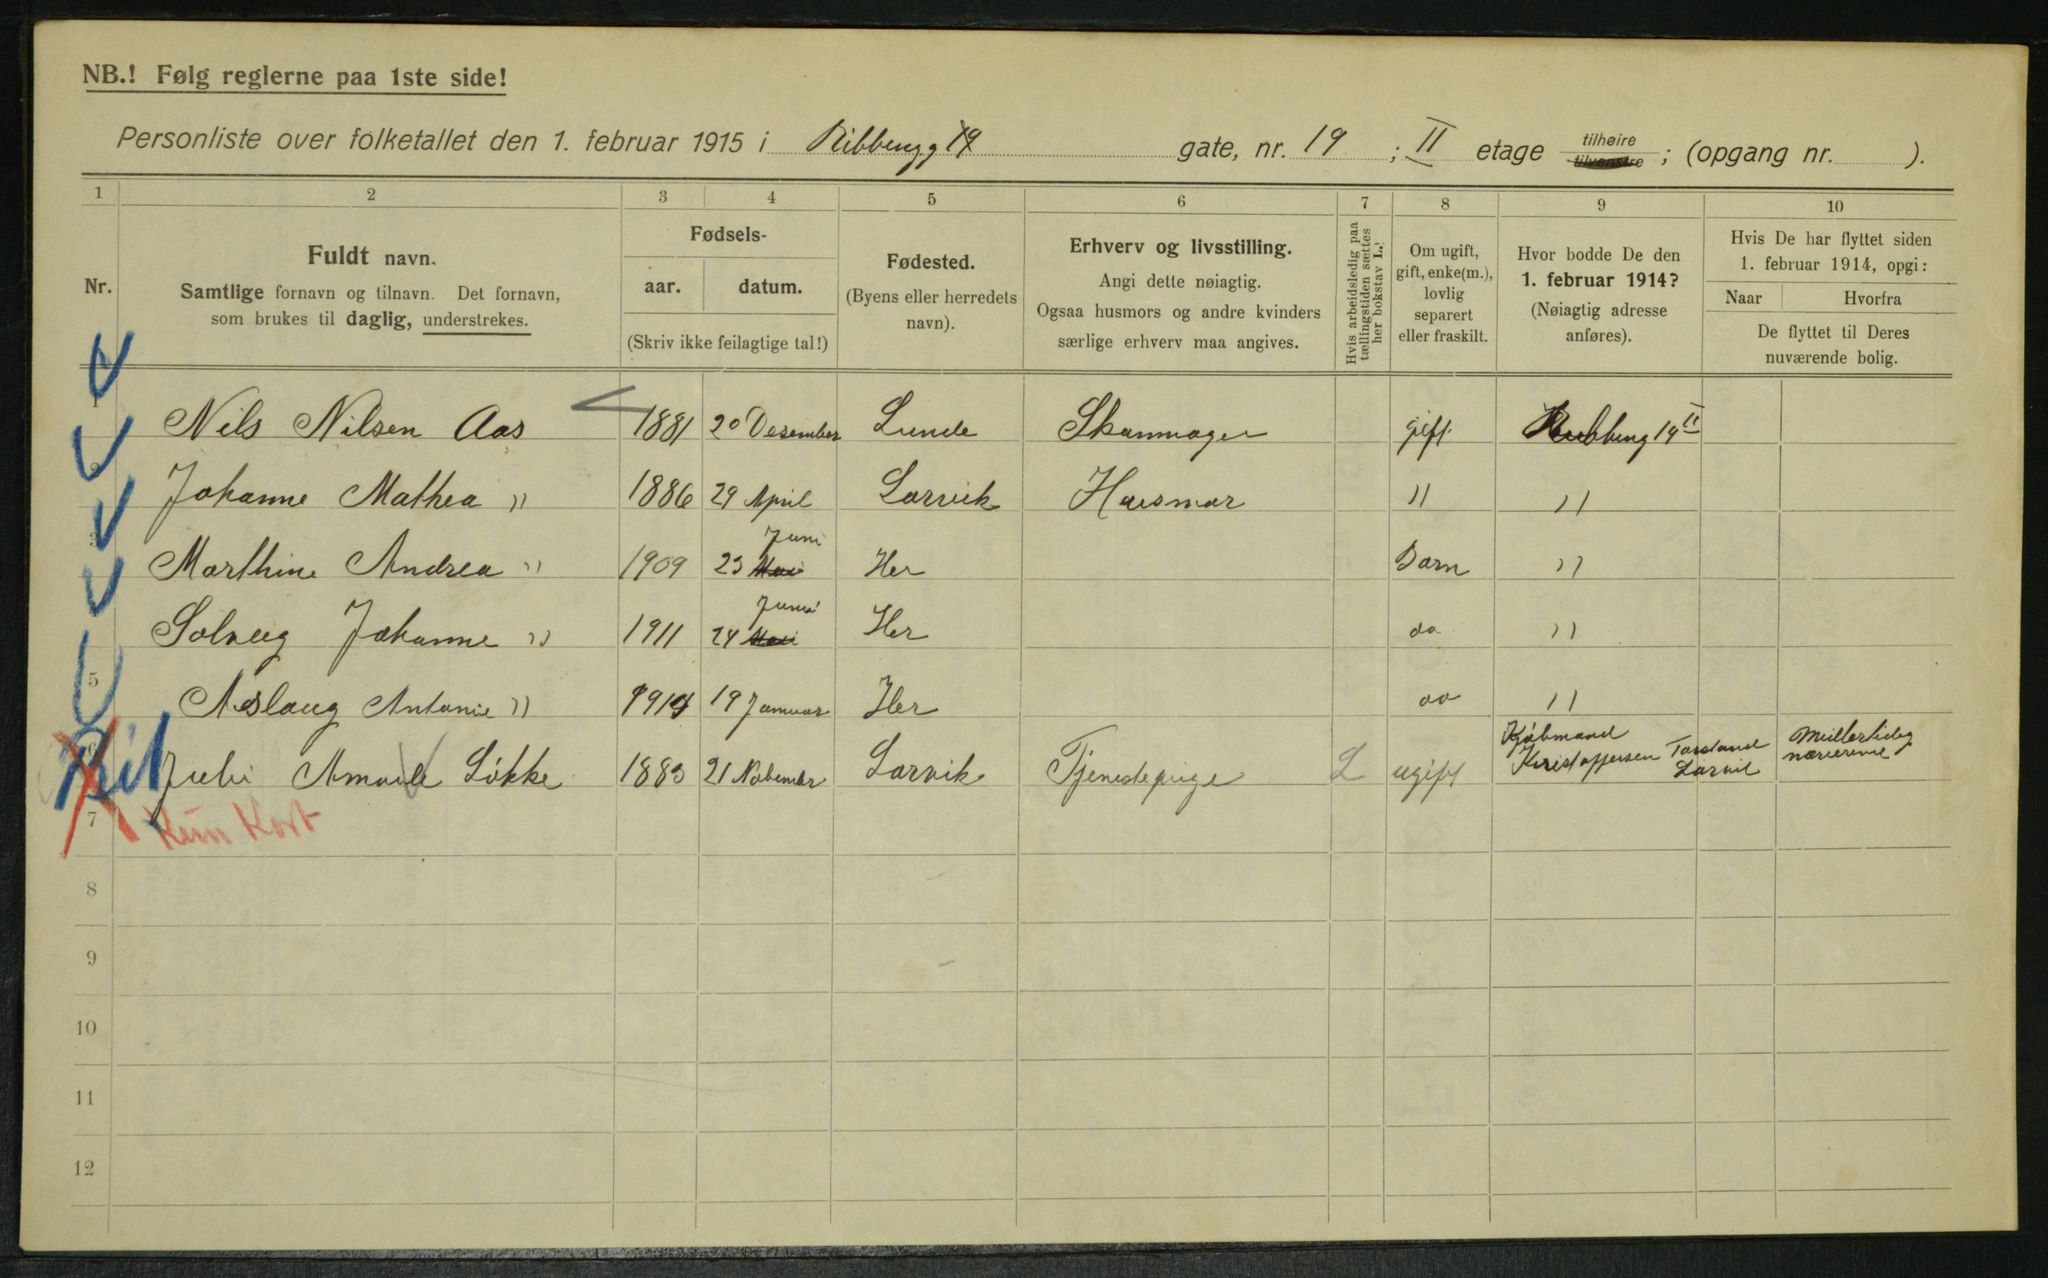 NB.! Følg reglerne paa 1ste side!
Personliste over folketallet den 1. februar 1915 i Ribbergg 19 gate, nr. 19 ; II etage tilhøire tilvenstre ; (opgang nr. ).
1 2 3 4 5 6 7 8 9 10
Nr.
Fuldt navn.
Samtlige fornavn og tilnavn. Det fornavn,
som brukes til daglig, understrekes.
Fødsels-
aar. datum.
(Skriv ikke feilagtige tal!)
Fødested.
(Byens eller herredets
navn).
Erhverv og livsstilling.
Angi dette nøiagtig.
Ogsaa husmors og andre kvinders
særlige erhverv maa angives.
Hvis arbeidsledig paa
tællingstiden sættes
her bokstav L.
Om ugift,
gift, enke(m.),
lovlig
separert
eller fraskilt.
Hvor bodde De den
1. februar 1914?
(Nøiagtig adresse
anføres).
Hvis De har flyttet siden
1. februar 1914, opgi:
Naar Hvorfra
De flyttet til Deres
nuværende bolig.
1 Nils Nilsen Aas 1881 20 Desember Lunde Skommager gift 19 II
2 Johanne Mathea " 1886 29 April Larvik Husmor " "
3 Marthine Andrea " 1909 23 Mai Juni Her Barn "
Solveig Johanne " 1911 24 Mai Juni Her do "
5 Aslaug Antonie " 1914 19 Januar Her do "
6 Juli Løkke 1883 21 November Larvik Tjenestepige L ugift Kjøbmand Kristoffersen Larvik
7 Kun Kort
8
9
10
11
12